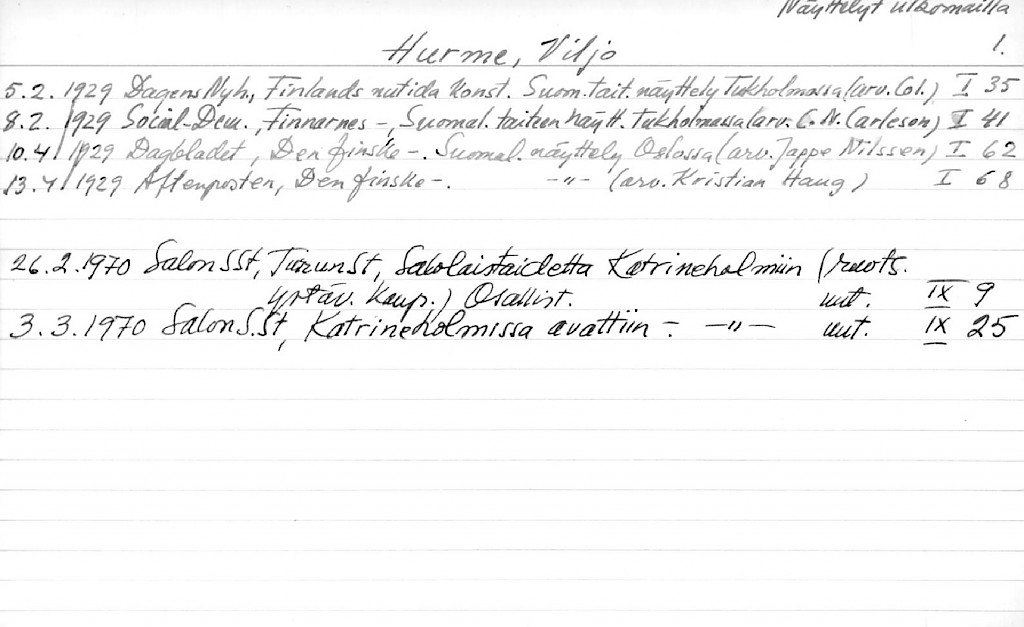 Näyttelyt ulkomailla
1.
Hurme, Viljo
5.2.1929 Dagens Nyh., Finlands nutida konst. Suom. tait. näyttely Tukholmassa (arv. Col.) I 35
8.2.1929 Social-Dem., Finnarnes -, Suomal. taiteen näytt. Tukholmassa (arv. C.N. Carleson) I 41
10.4.1929 Dagbladet, Den finske -. Suomal. näyttely Oslossa (arv. Jappe Nilssen) I 62
13.4.1929 Aftenposten, Den finske -. -"- (arv. Kristian Haug) I 68
26.2.1970 SalonSSt, TurunSt, Salolaistaidetta Katrineholmiin (ruots.
ystäv. kaup.) Osallist. uut. IX 9
3.3.1970 SalonS.St, Katrineholmissa avattiin -. -"- uut. IX 25